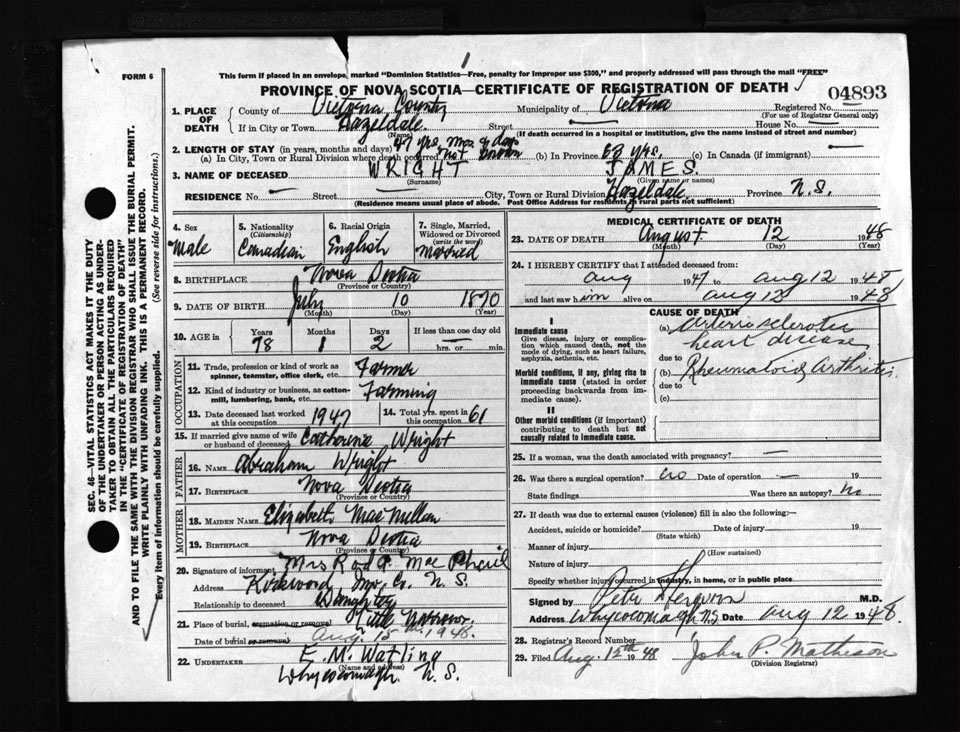 FORM 6
This form if placed in an envelope, marked "Dominion Statistics—Free, penalty for improper use $300," and properly addressed will pass through the mail "FREE"
PROVINCE OF NOVA SCOTIA—CERTIFICATE OF REGISTRATION OF DEATH
04893
1. PLACE OF DEATH
County of Victoria County Municipality of Victoria Registered No.
(For use of Registrar General only)
If in City or Town Hazeldale Street House No.
(Name) (If death occurred in a hospital or institution, give the name instead of street and number)
2. LENGTH OF STAY (in years, months and days)
(a) In City, Town or Rural Division where death occurred not known (b) In Province 69 yrs. (c) In Canada (if immigrant)
3. NAME OF DECEASED WRIGHT JAMES.
(Surname) (Given name or names)
RESIDENCE No. Street City, Town or Rural Division Hazeldale Province N.S.
(Residence means usual place of abode. Post Office Address for residents of rural parts not sufficient)
4. Sex
Male
5. Nationality
(Citizenship)
Canadian
6. Racial Origin
English
7. Single, Married, Widowed or Divorced
(write the word)
Married
8. BIRTHPLACE Nova Scotia
(Province or Country)
9. DATE OF BIRTH July 10 1870
(Month) (Day) (Year)
10. AGE in Years Months Days If less than one day old
78 1 2 hrs. or min.
OCCUPATION
11. Trade, profession or kind of work as spinner, teamster, office clerk, etc. Farmer
12. Kind of industry or business, as cotton-mill, lumbering, bank, etc. Farming
13. Date deceased last worked at this occupation 1947
14. Total yrs. spent in this occupation 61
15. If married give name of wife or husband of deceased Catherine Wright
FATHER
16. NAME Abraham Wright
17. BIRTHPLACE Nova Scotia
(Province or Country)
MOTHER
18. MAIDEN NAME Elizabeth MacMillan
19. BIRTHPLACE Nova Scotia
(Province or Country)
20. Signature of informant Mrs Rod A. Mac Phail
Address Kirkwood, Inv. Co. N. S.
Relationship to deceased Daughter
21. Place of burial, cremation or removal Little Narrows.
Date of burial or removal Aug. 15th 1948.
22. UNDERTAKER E. M. Watling
(Name and address)
Whycocomagh. N. S.
MEDICAL CERTIFICATE OF DEATH
23. DATE OF DEATH August 12 1948
(Month) (Day) (Year)
24. I HEREBY CERTIFY that I attended deceased from:
Aug 1947 to Aug 12 1948
and last saw him alive on Aug 12 1948
CAUSE OF DEATH
I
Immediate cause
Give disease, injury or complication which caused death, not the mode of dying, such as heart failure, asphyxia, asthenia, etc.
(a) Arteriosclerotic
heart disease
due to
Morbid conditions, if any, giving rise to immediate cause (stated in order proceeding backwards from immediate cause).
(b) Rheumatoid Arthritis.
due to
(c)
II
Other morbid conditions (if important) contributing to death but not causally related to immediate cause.
25. If a woman, was the death associated with pregnancy?
26. Was there a surgical operation? no Date of operation 19
State findings Was there an autopsy? no
27. If death was due to external causes (violence) fill in also the following:—
Accident, suicide or homicide? Date of injury 19
(State which)
Manner of injury
(How sustained)
Nature of injury
Specify whether injury occurred in industry, in home, or in public place
Signed by Peter Ferguson M.D.
Address Whycocomagh N.S. Date Aug 12 1948.
28. Registrar's Record Number
29. Filed Aug. 12th 1948 John P. Matheson
(Division Registrar)
SEC. 46—VITAL STATISTICS ACT MAKES IT THE DUTY
OF THE UNDERTAKER OR PERSON ACTING AS UNDER-
TAKER TO OBTAIN ALL THE PARTICULARS REQUIRED
IN THE "CERTIFICATE OF REGISTRATION OF DEATH"
AND TO FILE THE SAME WITH THE DIVISION REGISTRAR WHO SHALL ISSUE THE BURIAL PERMIT.
WRITE PLAINLY WITH UNFADING INK. THIS IS A PERMANENT RECORD.
Every item of information should be carefully supplied. (See reverse side for instructions.)